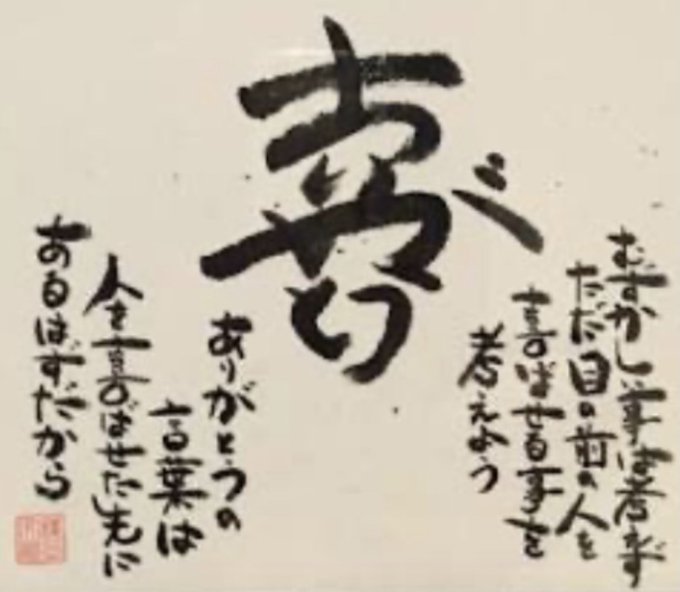 むずかしい事は考えず
ただ目の前の人を
喜ばせる事を
考えよう
喜べ
ありがとうの
言葉は
人を喜ばせた先に
あるはずだから